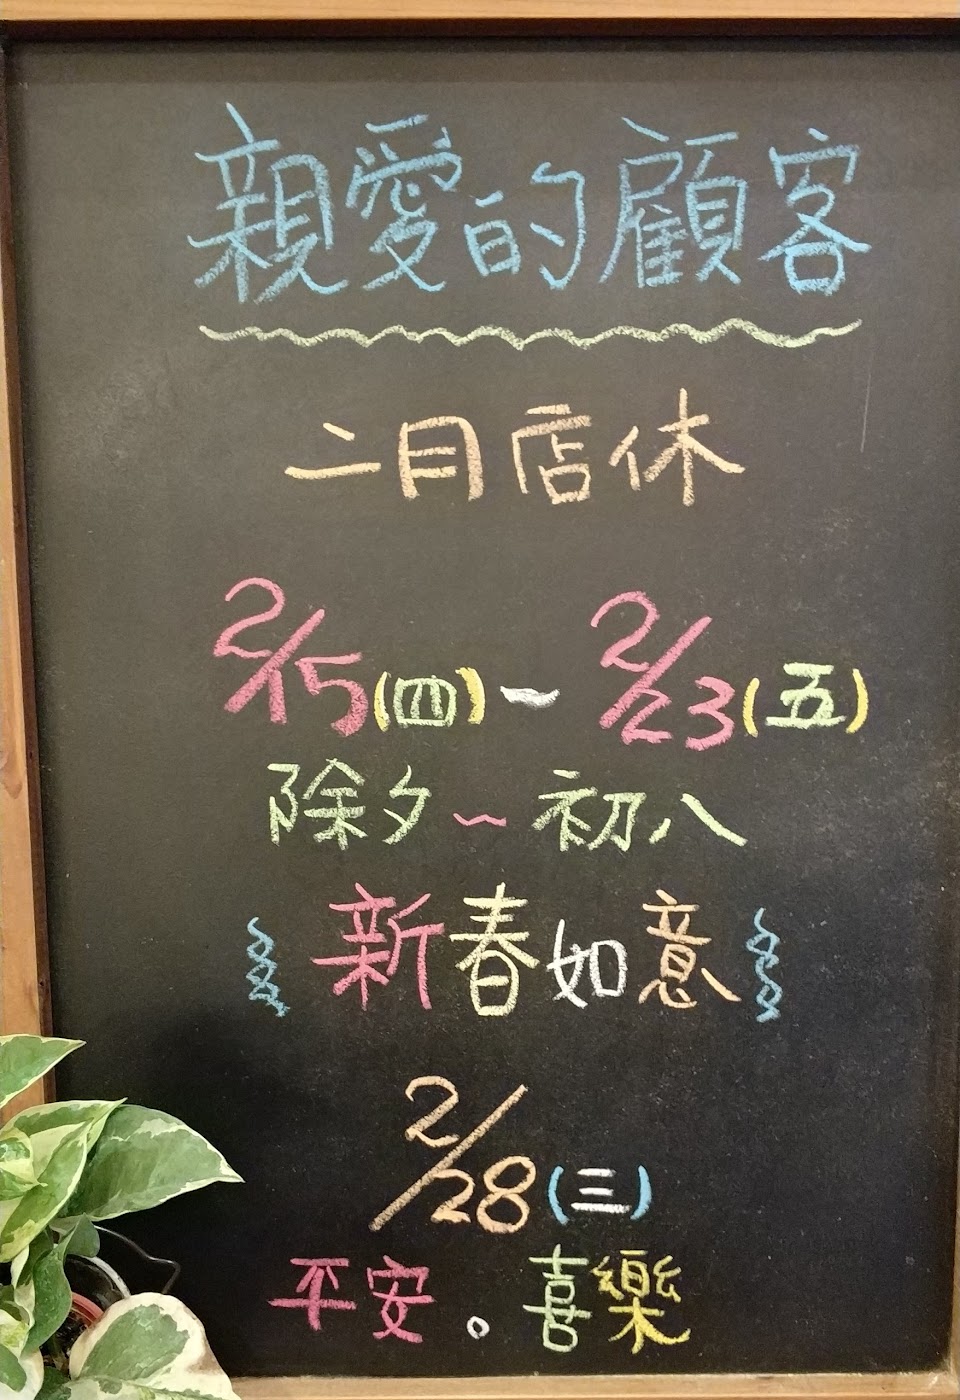 親愛的顧客
二月店休
2/15(四)~2/23(五)
除夕~初八
新春如意
2/28(三)
平安。喜樂